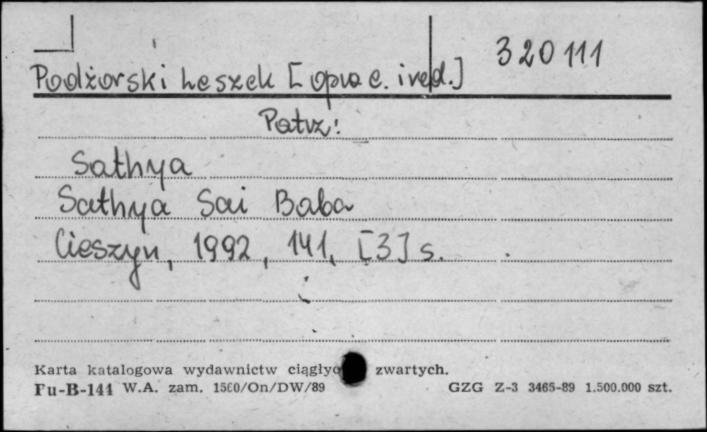 320111
Podżorski Leszek [oprac. i red.]
Patrz:
Sathya
Sathya Sai Baba
Cieszyn, 1992, 141, [3] s.
Karta katalogowa wydawnictw ciągłyc zwartych.
Fu-B-144 W.A. zam. 1560/On/DW/89 GZG Z-3 3465-89 1.500.000 szt.